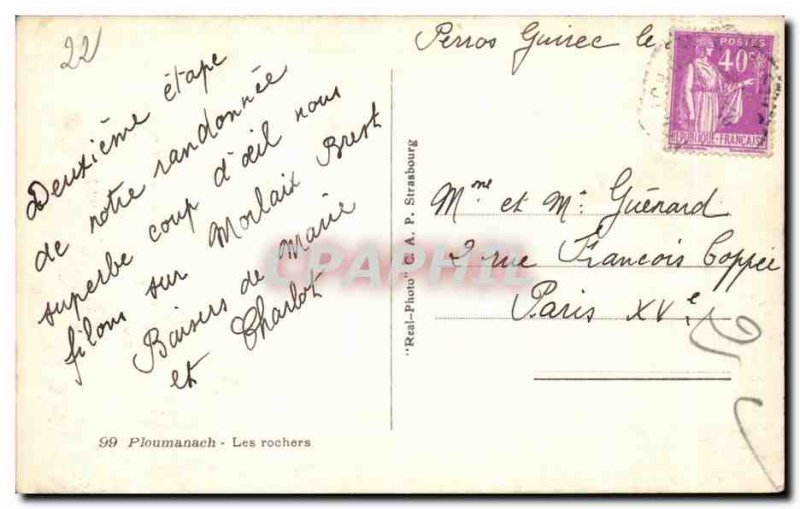 22
Perros Guirec le
POSTES
40c
REPUBLIQUE-FRANÇAISE
Deuxième étape
de notre randonnée
superbe coup d'œil nous
filons sur Morlaix Brest
Baisers de Marie
et Charlot
"Real-Photo" C. A. P. Strasbourg
Mme et Mr Guénard
2 rue François Coppée
Paris XVe
CPAPHIL
99 Ploumanach - Les rochers